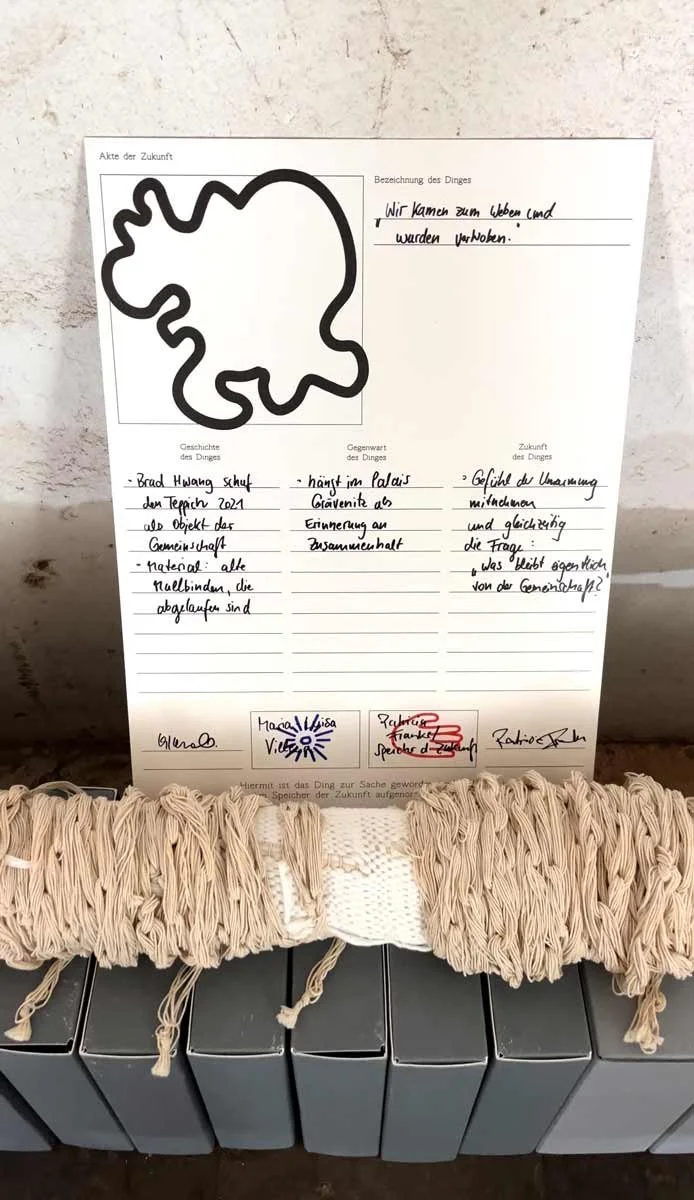 Akte der Zukunft
Bezeichnung des Dinges
„Wir kamen zum Weben und
wurden verwoben."
Geschichte
des Dinges
- Brad Hwang schuf
den Teppich 2021
als Objekt der
Gemeinschaft
- Material: alte
Mullbinden, die
abgelaufen sind
Gegenwart
des Dinges
- hängt im Palais
Grävenitz als
Erinnerung an
Zusammenhalt
Zukunft
des Dinges
- Gefühl der Umarmung
mitnehmen
und gleichzeitig
die Frage:
„was bleibt eigentlich
von der Gemeinschaft?"
Maria
Patricia
Frankel
Speicher d. Zukunft
Hiermit ist das Ding zur Sache geword
Speicher der Zukunft aufgenom